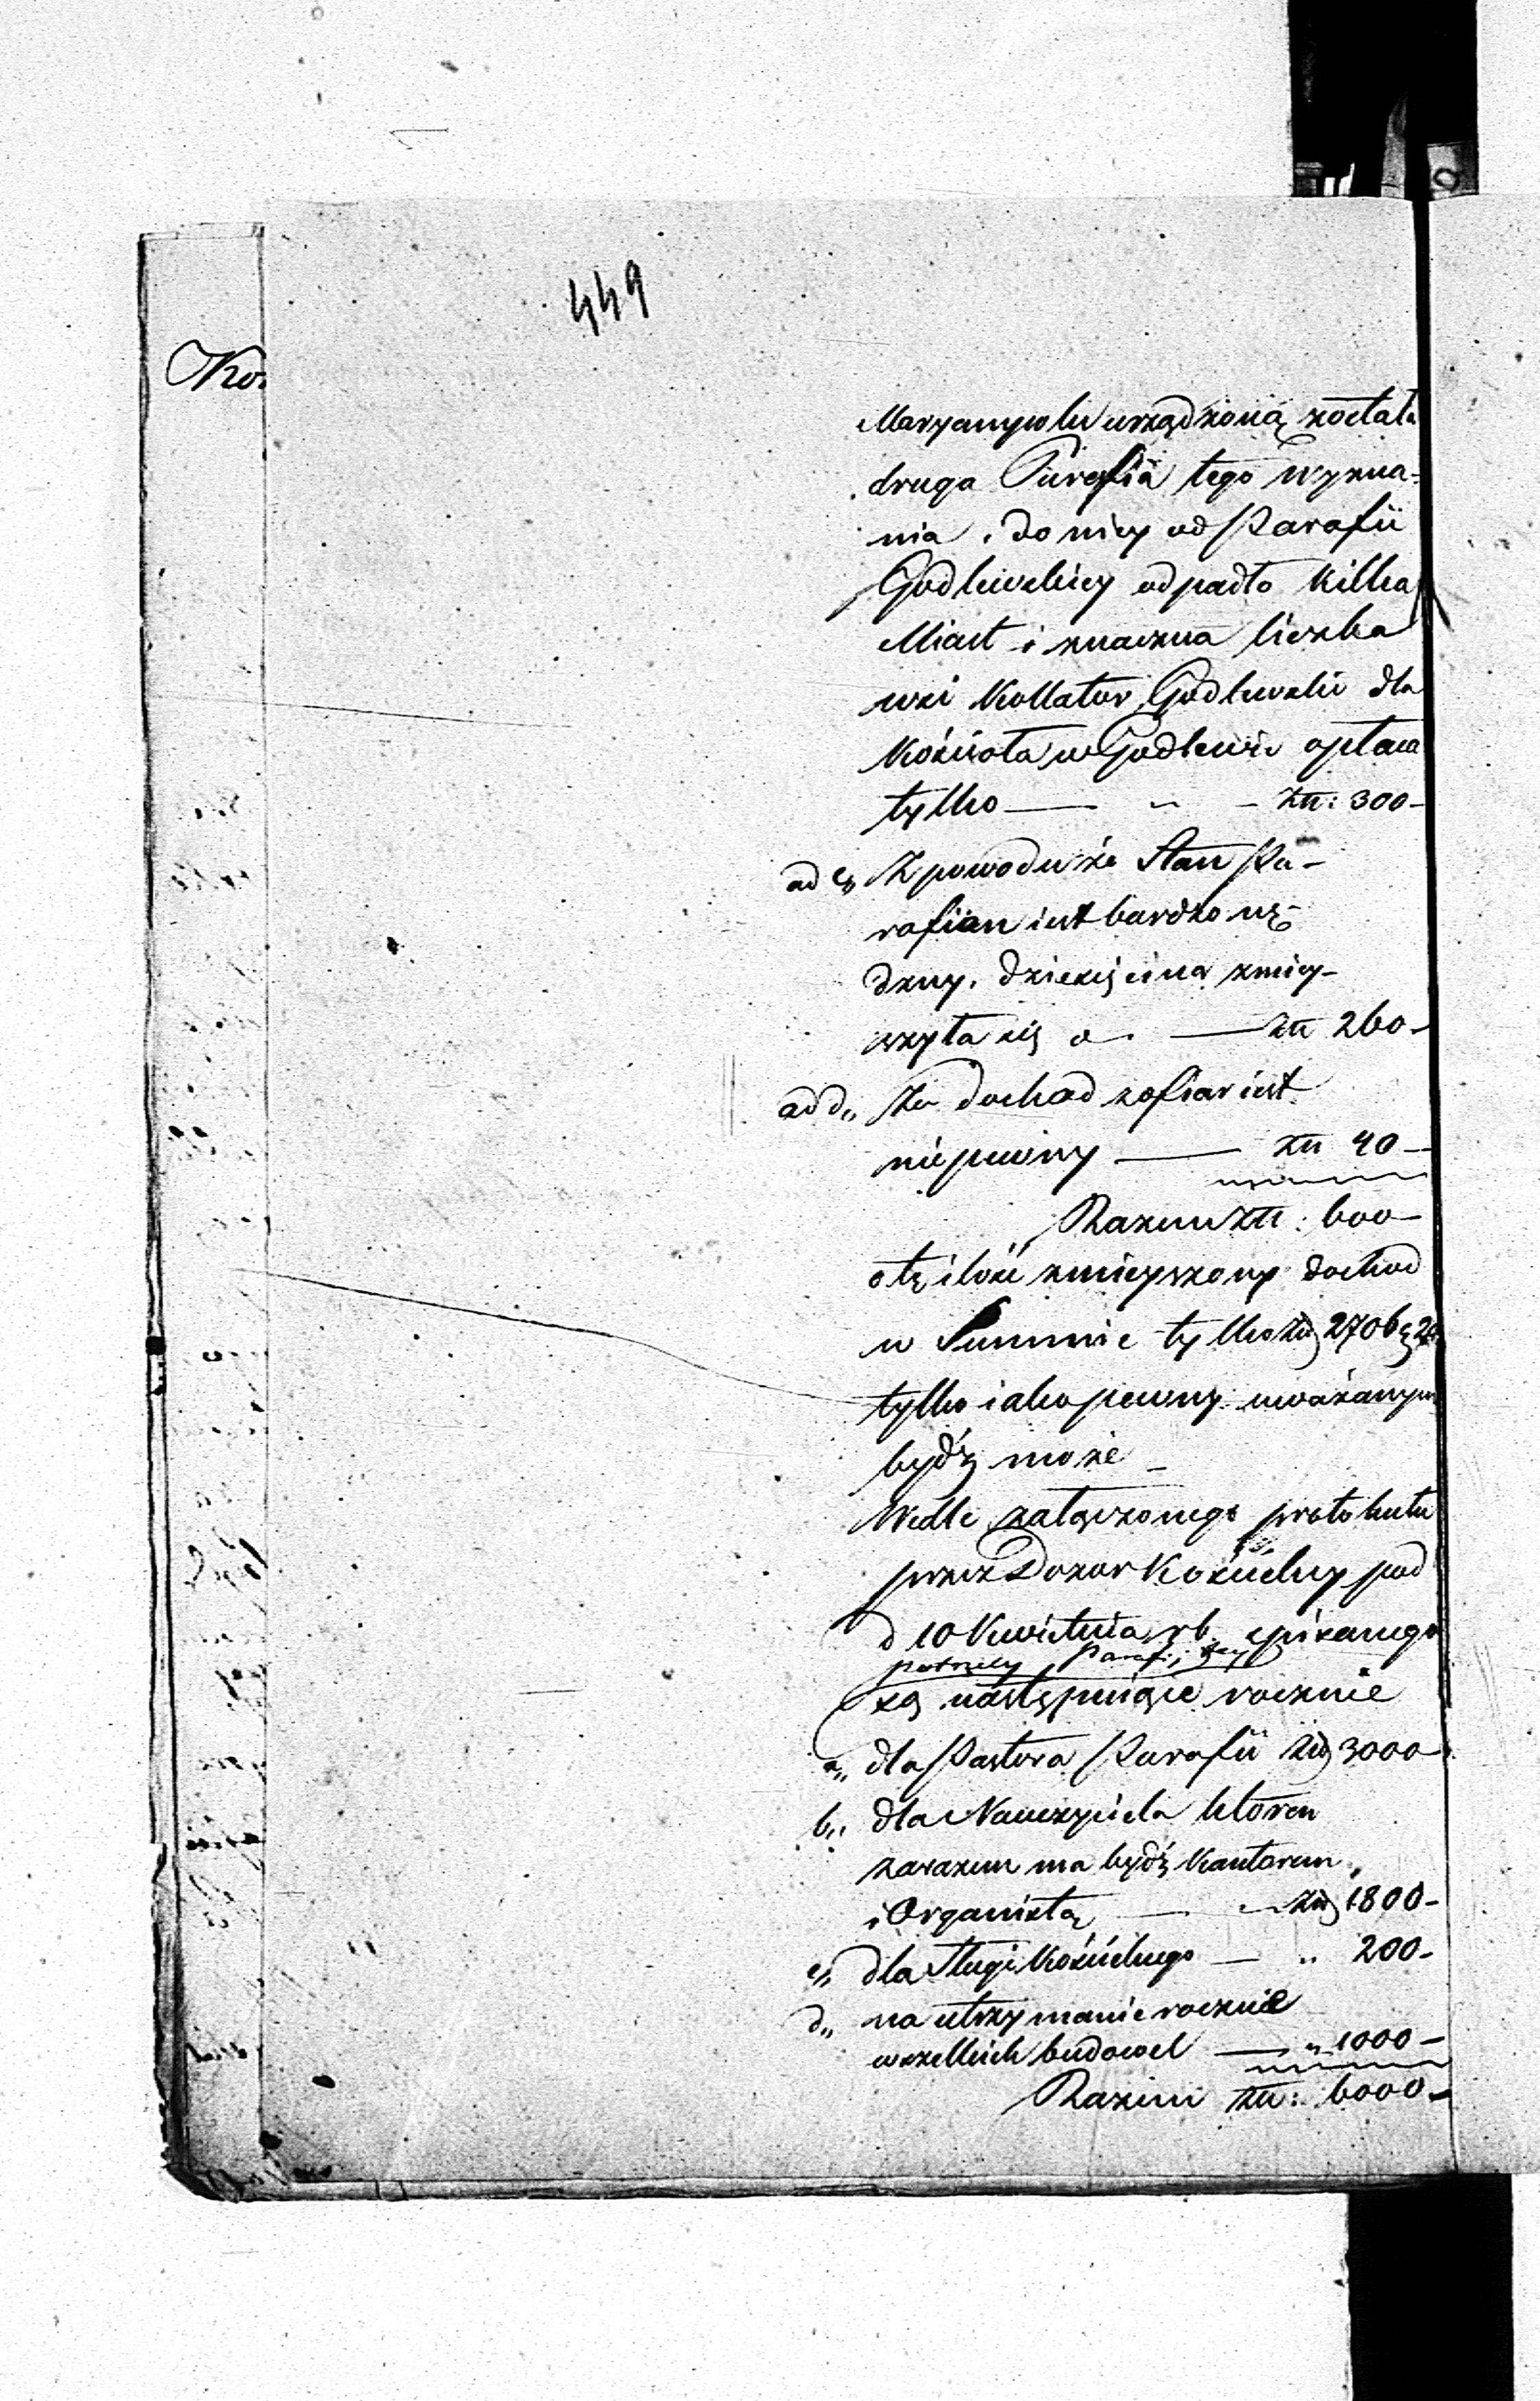 449
Ko
Maryampolu urządzoną została
druga Parafia tego wyzna-
nia, do niey od Parafii
Godlewskiey odpadło kilka
Miast i znaczna liczba
wsi Kollator Godlewski dla
Kościoła w Godlewie opłaca
tylko — " — Złł: 300-
ad c,, Z powodu że Stan Pa-
rafian iest bardzo nę-
dzny, dziesięcina zmiey-
szyła się o — Złł 260-
ad d,, Za dochod z ofiar iest
niepewny — Złł 40-
Razem Złł: 600-
o tę ilość zmieyszony dochod
w Summie tylko Złł 2706 g 20
tylko iako pewny uważanym
bydź może
Wedle załączonego protokułu
przez Dozor Kościelny pod
d 10 Kwietnia r b. spisanego
potrzeby Parafii tey
są następuiące rocznie
a,, dla Pastora Parafii Złł 3000-
b,, dla Nauczyciela ktoren
zarazem ma bydź Kantorem
i Organistą — Złł 1800-
c,, dla Sługi Kościelnego — " 200-
d,, na utrzymanie rocznie
wszelkich budowel — " 1000-
Razem Złł: 6000-